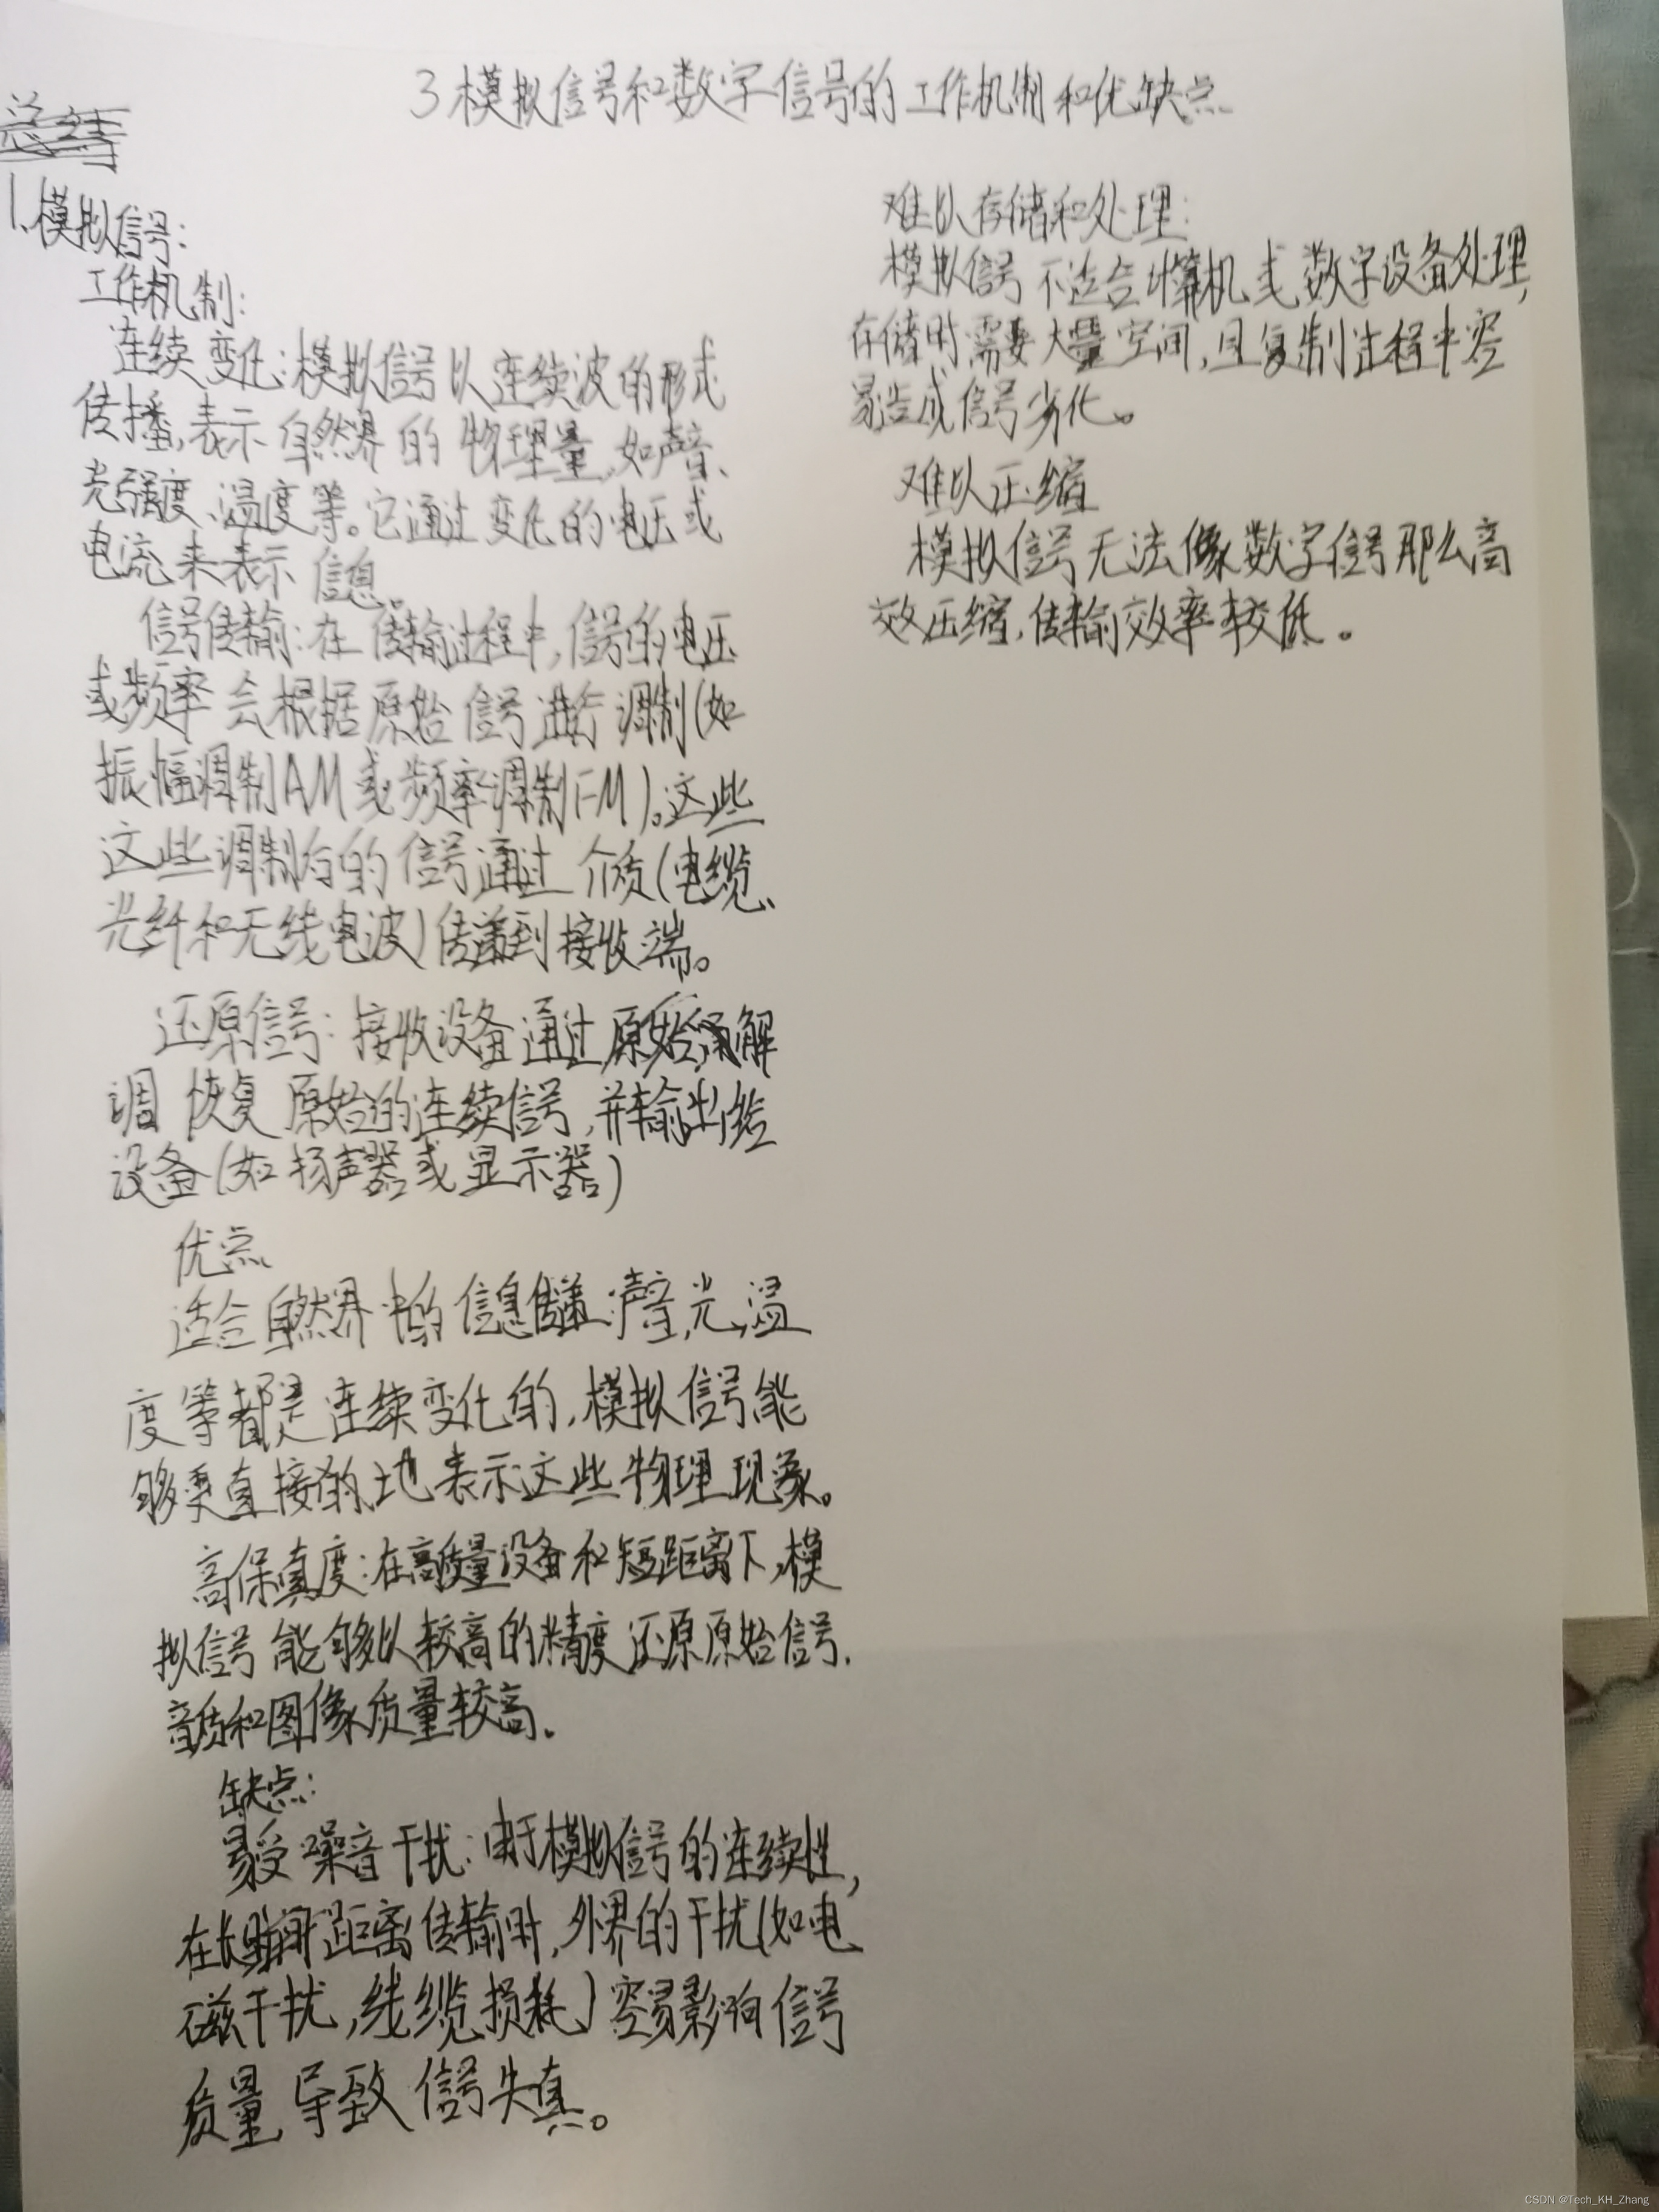 3模拟信号和数字信号的工作机制和优缺点
总结
1.模拟信号：
工作机制：
连续变化：模拟信号以连续波的形式
传播，表示自然界的物理量，如声音、
光强度、温度等。它通过变化的电压或
电流来表示信息。
信号传输：在传输过程中，信号的电压
或频率会根据原始信号进行调制（如
振幅调制AM或频率调制FM）。这些
这些调制后的信号通过介质（电缆、
光纤和无线电波）传递到接收端。
还原信号：接收设备通过原始解
调恢复原始的连续信号，并输出给
设备（如扬声器或显示器）
优点
适合自然界中的信息传递：声音，光，温
度等都是连续变化的，模拟信号能
够更直接的地表示这些物理现象。
高保真度：在高质量设备和短距离下，模
拟信号能够以较高的精度还原原始信号，
音质和图像质量较高。
缺点：
易受噪音干扰：由于模拟信号的连续性，
在长距离传输时，外界的干扰（如电
磁干扰，线缆损耗）容易影响信号
质量，导致信号失真。
难以存储和处理：
模拟信号不适合计算机或数字设备处理，
存储时需要大量空间，且复制过程中容
易造成信号劣化。
难以压缩
模拟信号无法像数字信号那么高
效压缩，传输效率较低。
CSDN @Tech_KH_Zhang